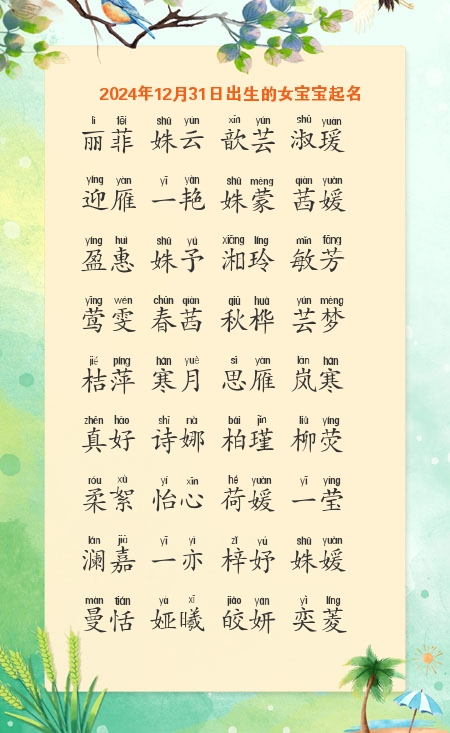 2024年12月31日出生的女宝宝起名
lì fēi shū yún xīn yún shū yuàn
丽菲 姝云 歆芸 淑瑗
yíng yàn yī yàn shū méng qiàn yuàn
迎雁 一艳 姝蒙 茜媛
yíng huì shū yú xiāng líng mǐn fāng
盈惠 姝予 湘玲 敏芳
yīng wén chūn qiàn qiū huà yún mèng
莺雯 春茜 秋桦 芸梦
jié píng hán yuè sī yàn lán hán
桔萍 寒月 思雁 岚寒
zhēn hǎo shī nà bǎi jǐn liǔ yíng
真好 诗娜 柏瑾 柳荧
róu xù yí xīn hé yuàn yī yíng
柔絮 怡心 荷媛 一莹
lán jiā yī yì zǐ yú shū yuàn
澜嘉 一亦 梓妤 姝媛
màn tián yà xī jiǎo yán yì líng
曼恬 娅曦 皎妍 奕菱